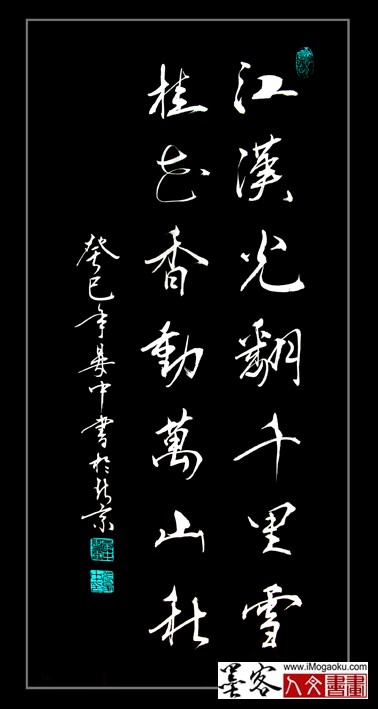 江漢光翻千里雪
桂花香動萬山秋
癸巳年中書於北京
www.iMogaoku.com
墨客人文書畫